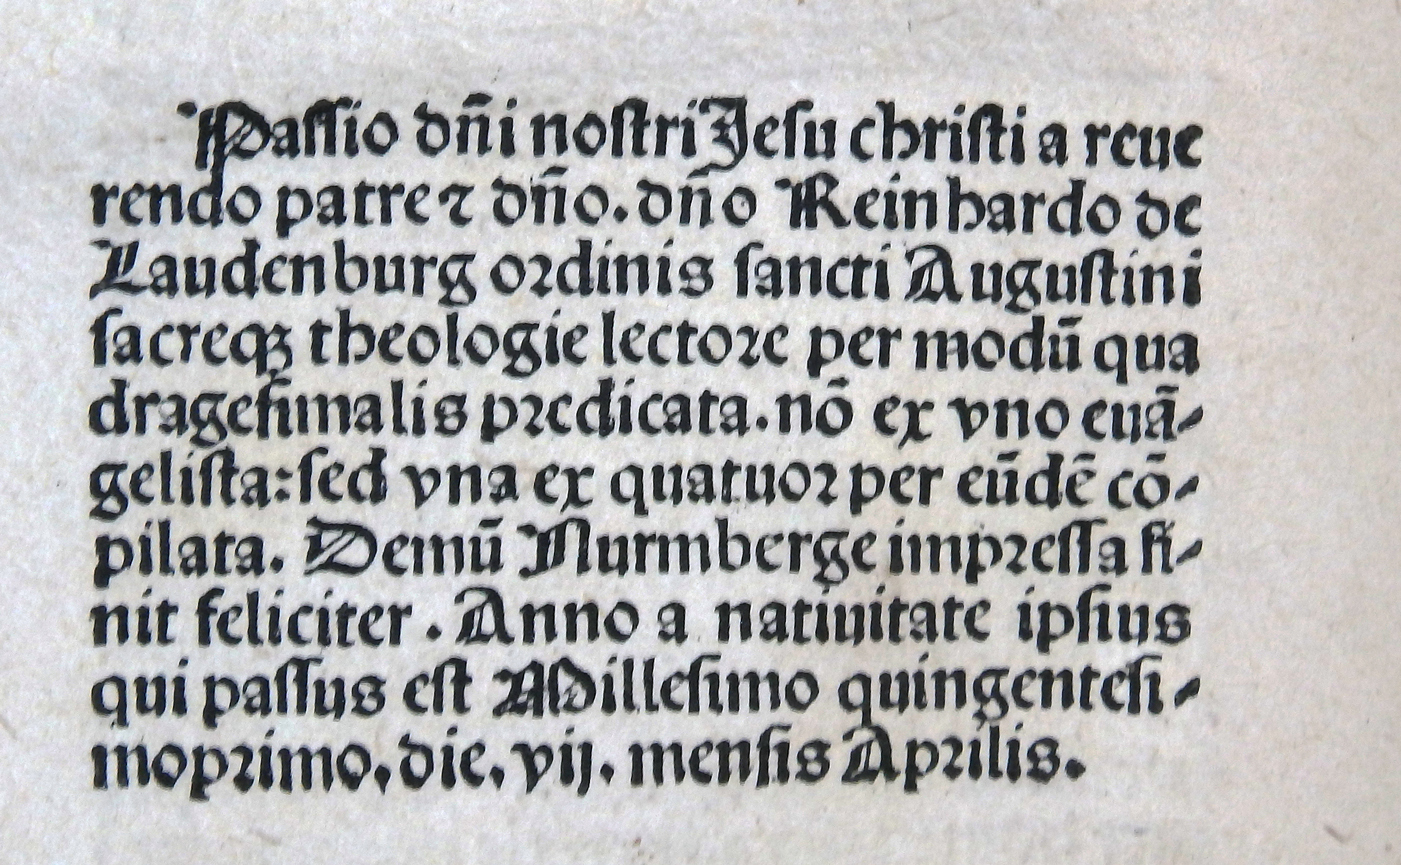 Paſſio dn̄i noſtri Jeſu chriſti a reue
rendo patre ⁊ dn̄o. dn̄o Reinhardo de
Laudenburg oꝛdinis ſancti Auguſtini
ſacreqꝫ theologie lectoꝛe per modū qua
drageſimalis pꝛedicata. nō ex vno euā⸗
geliſta: ſed vna ex quatuoꝛ per eūdē cō⸗
pilata. Demū Nurmberge impꝛeſſa fi⸗
nit feliciter. Anno a natiuitate ipſius
qui paſſus eſt Milleſimo quingenteſi⸗
mopꝛimo, die, vij. menſis Apꝛilis.